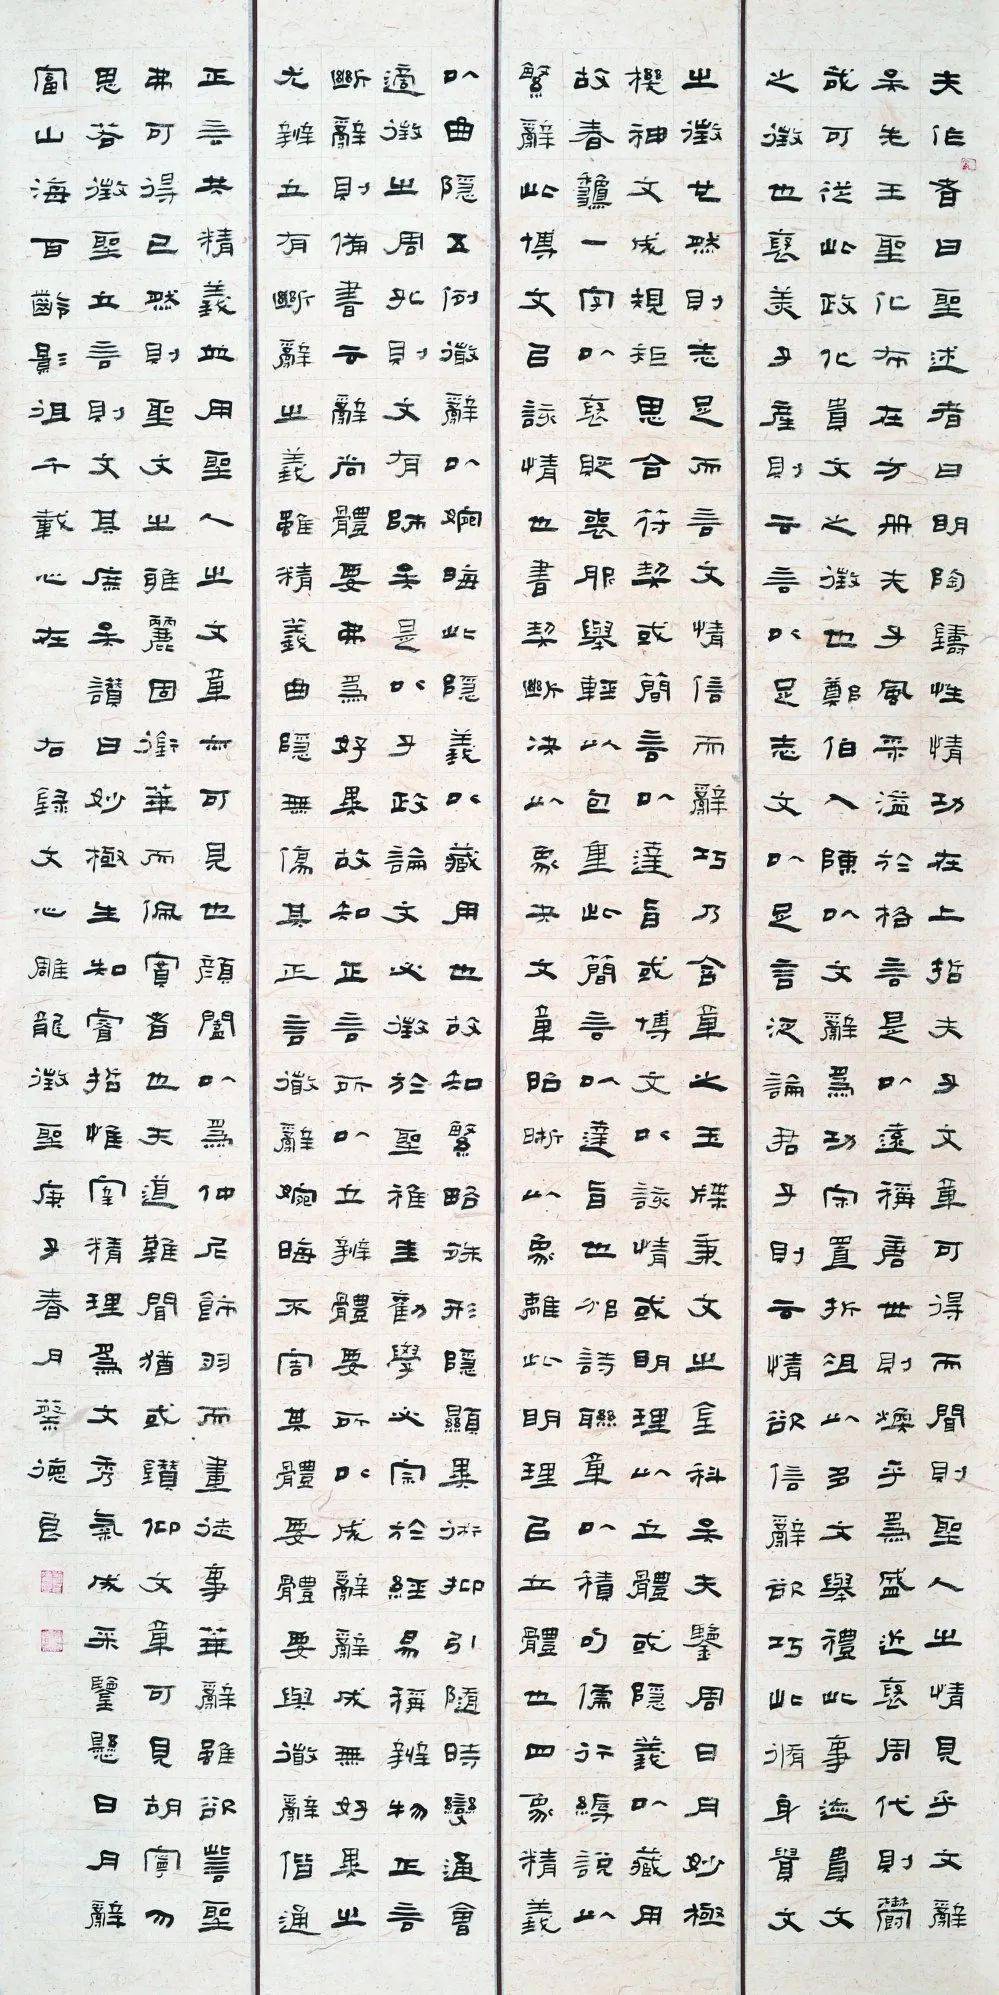 夫作者曰聖述者曰明陶鑄性情功在上哲夫子文章可得而聞則聖人之情見乎文辭
矣先王聖化布在方冊夫子風采溢於格言是以遠稱唐世則煥乎爲盛近褒周代則鬱
哉可從此政化貴文之徵也鄭伯入陳以文辭爲功宋置折俎以多文舉禮此事迹貴文
之徵也褒美子產則云言以足志文以足言泛論君子則云情欲信辭欲巧此脩身貴文
之徵也然則志足而言文情信而辭巧乃含章之玉牒秉文之金科矣夫鑒周日月妙極
機神文成規矩思合符契或簡言以達旨或博文以該情或明理以立體或隱義以藏用
故春秋一字以褒貶喪服舉輕以包重此簡言以達旨也邠詩聯章以積句儒行縟說以
繁辭此博文以該情也書契斷決以象夬文章昭晰以象離此明理以立體也四象精義
以曲隱五例微辭以婉晦此隱義以藏用也故知繁略殊形隱顯異術抑引隨時變通會
適徵之周孔則文有師矣是以子政論文必徵於聖稚圭勸學必宗於經易稱辨物正言
斷辭則備書云辭尚體要弗爲好異故知正言所以立辨體要所以成辭辭成無好異之
尤辨立有斷辭之義雖精義曲隱無傷其正言微辭婉晦不害其體要體要與微辭偕通
正言共精義並用聖人之文章亦可見也顏闔以爲仲尼飾羽而畫徒事華辭雖欲訾聖
弗可得已然則聖文之雅麗固銜華而佩實者也天道難聞猶或鑽仰文章可見胡寧勿
思若徵聖立言則文其庶矣讚曰妙極生知睿哲惟宰精理爲文秀氣成采鑒懸日月辭
富山海百齡影徂千載心在右錄文心雕龍徵聖庚子春月蔡德良